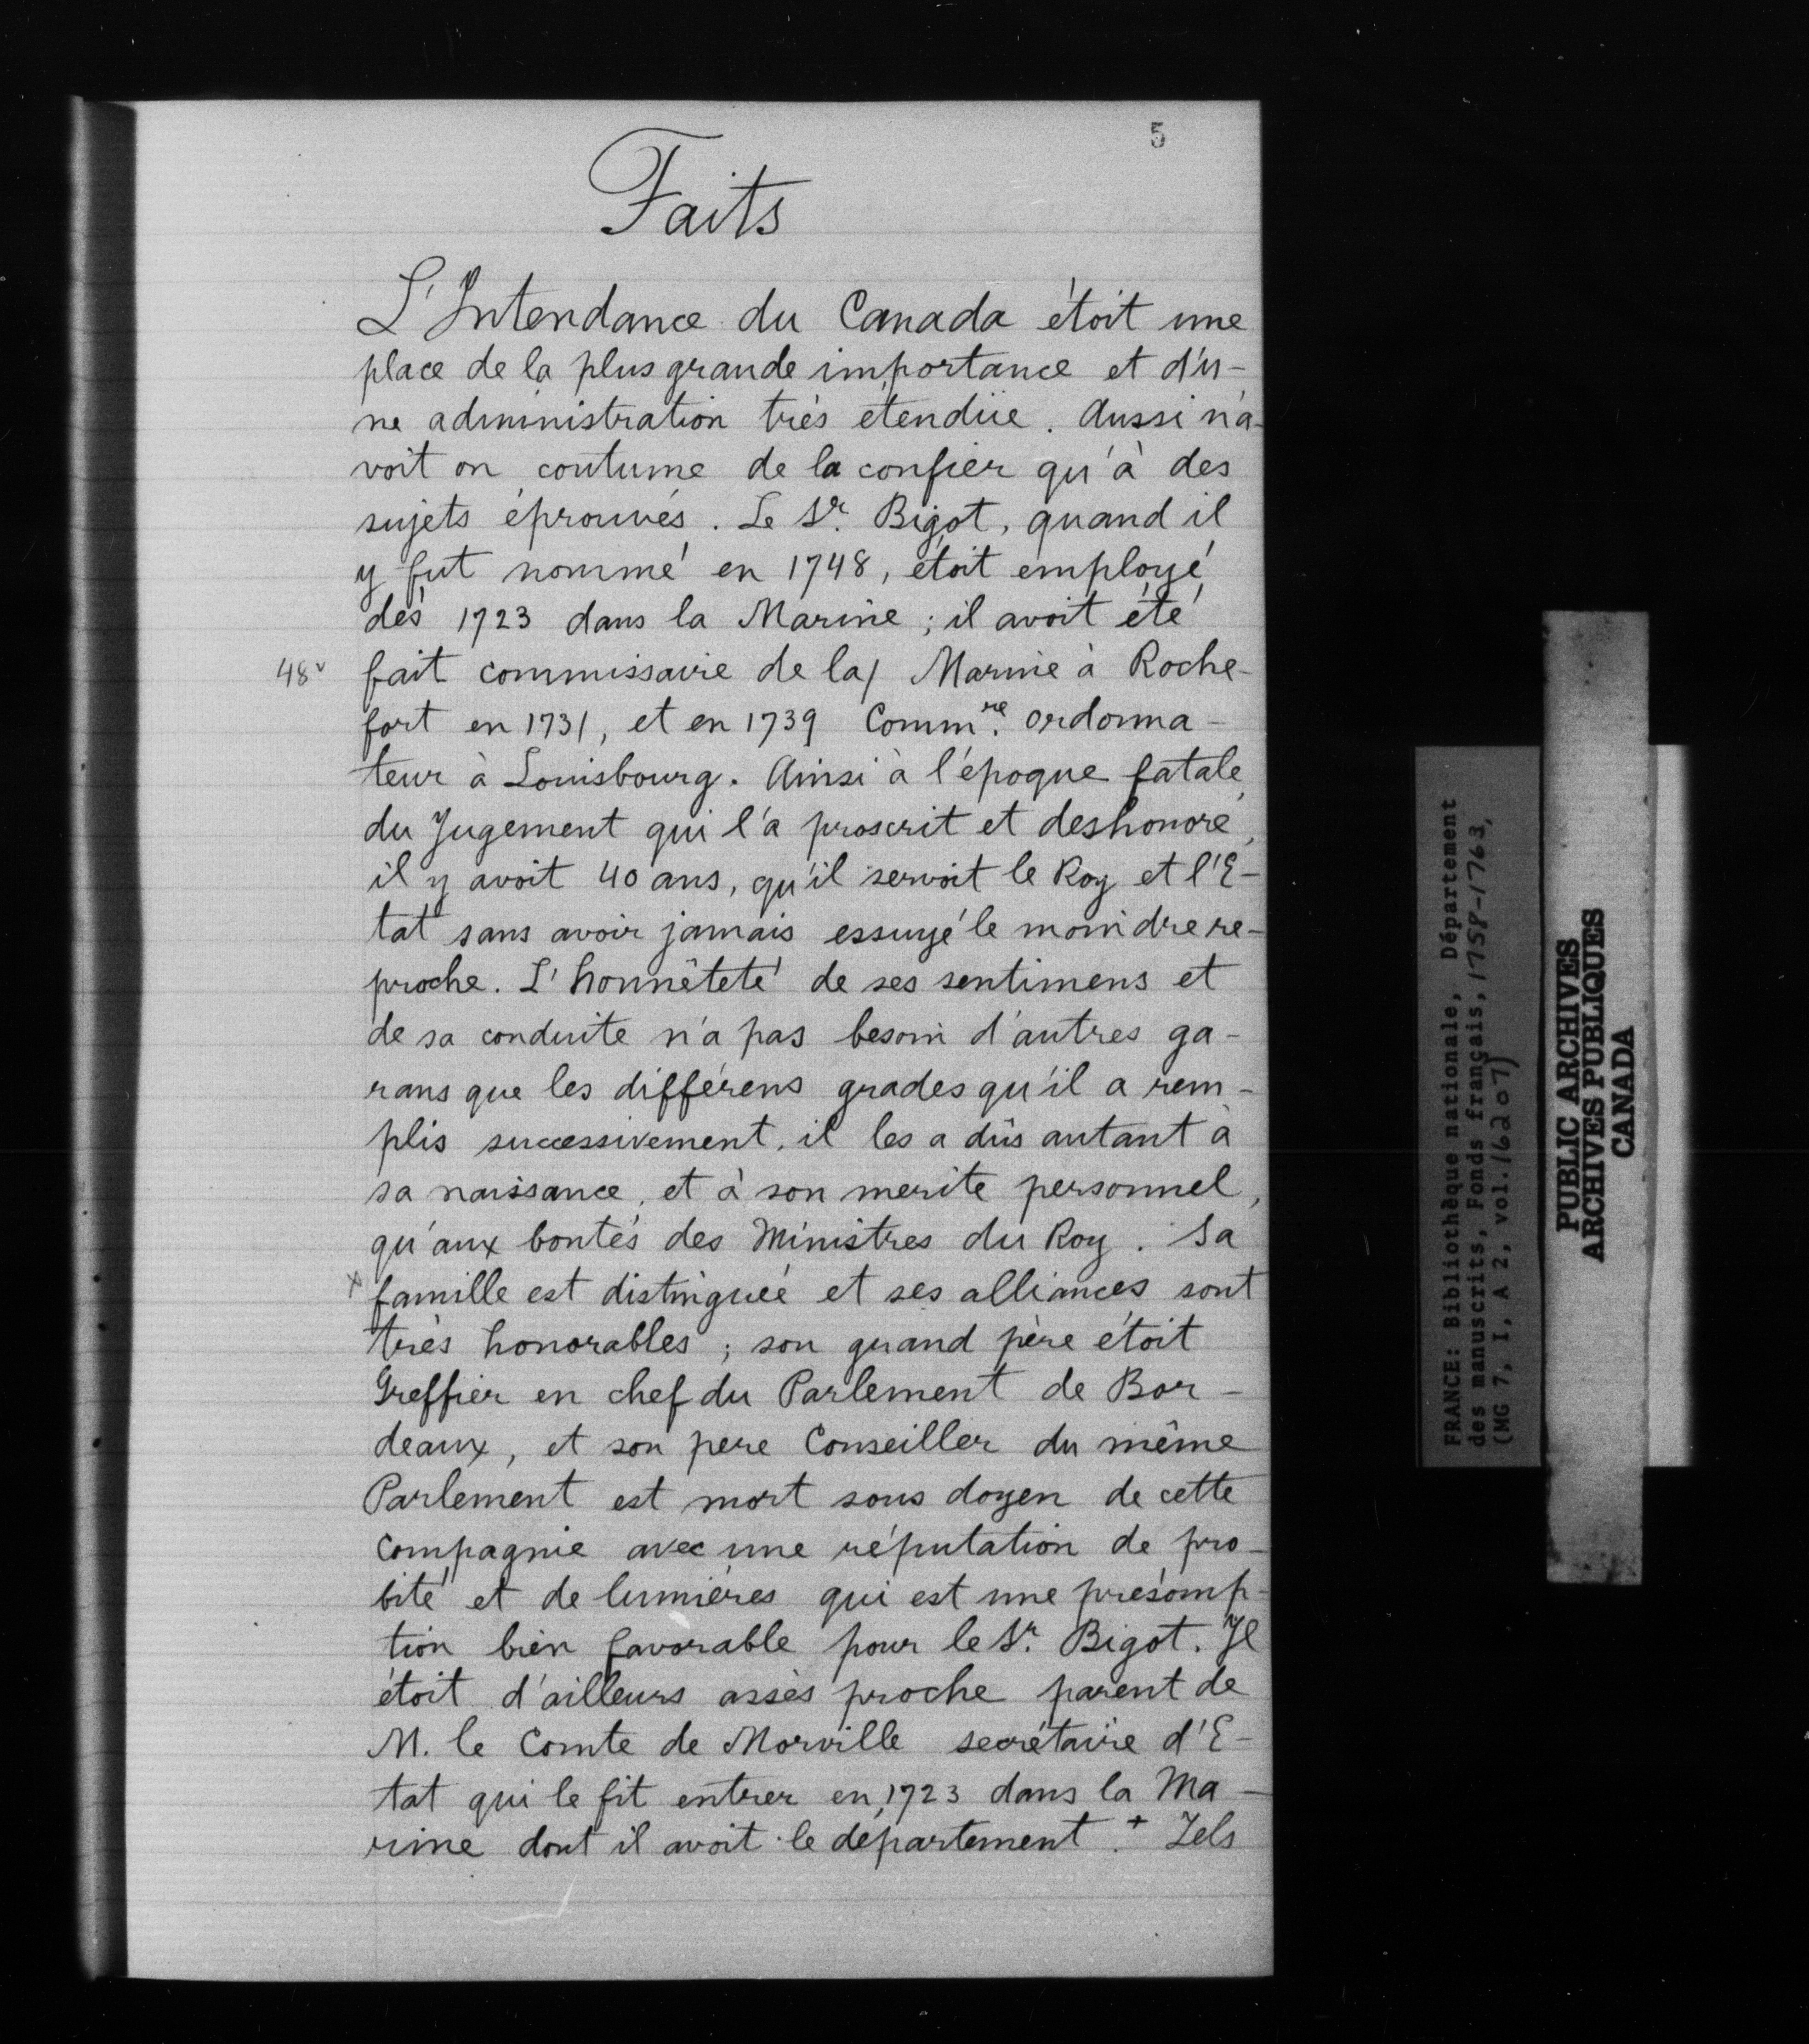 5
Faits
L'Intendance du Canada étoit une
place de la plus grande importance et d'u-
ne administration très étendüe. Aussi n'a-
voit on coutume de la confier qu'à des
sujets éprouvés. Le Sr. Bigot, quand il
y fut nommé en 1748, étoit employé
dès 1723 dans la Marine ; il avoit été
48v fait commissaire de la/ Marine à Roche-
fort en 1731, et en 1739 Commre. ordonna-
teur à Louisbourg. Ainsi à l'époque fatale
du Jugement qui l'a proscrit et deshonoré,
il y avoit 40 ans, qu'il servoit le Roy et l'E-
tat sans avoir jamais essuyé le moindre re-
proche. L'honnêteté de ses sentimens et
de sa conduite n'a pas besoin d'autres ga-
rans que les différens grades qu'il a rem-
plis successivement, il les a dûs autant à
sa naissance, et à son merite personnel,
qu'aux bontés des Ministres du Roy. Sa
x famille est distinguée et ses alliances sont
très honorables ; son grand père étoit
Greffier en chef du Parlement de Bor-
deaux, et son pere Conseiller du même
Parlement est mort sous doyen de cette
Compagnie avec une réputation de pro-
bité et de lumières qui est une présomp-
tion bien favorable pour le Sr. Bigot. Il
étoit d'ailleurs assès proche parent de
M. le Comte de Morville secrétaire d'E-
tat qui le fit entrer en 1723 dans la Ma-
rine dont il avoit le département. + Tels
FRANCE: Bibliothèque nationale, Département
des manuscrits, Fonds français, 1758-1763,
(MG 7, I, A 2, vol. 16207)
PUBLIC ARCHIVES
ARCHIVES PUBLIQUES
CANADA